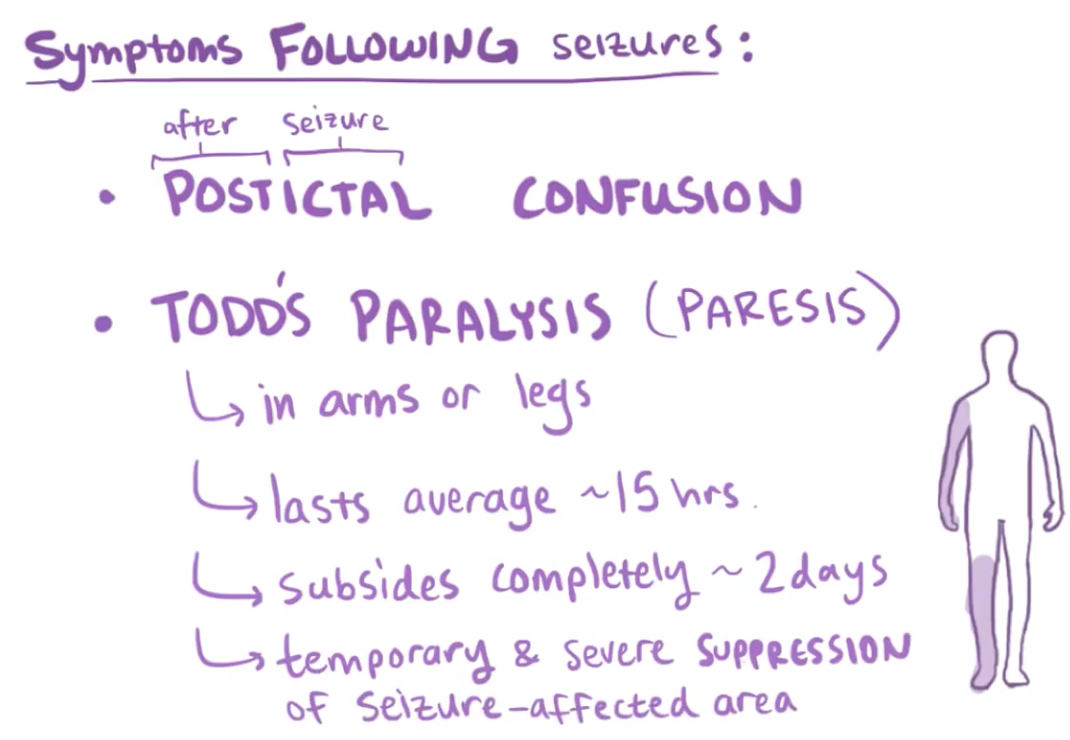 Symptoms FOLLOWING seizures:
after seizure
• POSTICTAL CONFUSION
• TODD'S PARALYSIS (PARESIS)
↳ in arms or legs
↳ lasts average ~15 hrs.
↳ subsides completely ~2days
↳ temporary & severe SUPPRESSION
of seizure-affected area